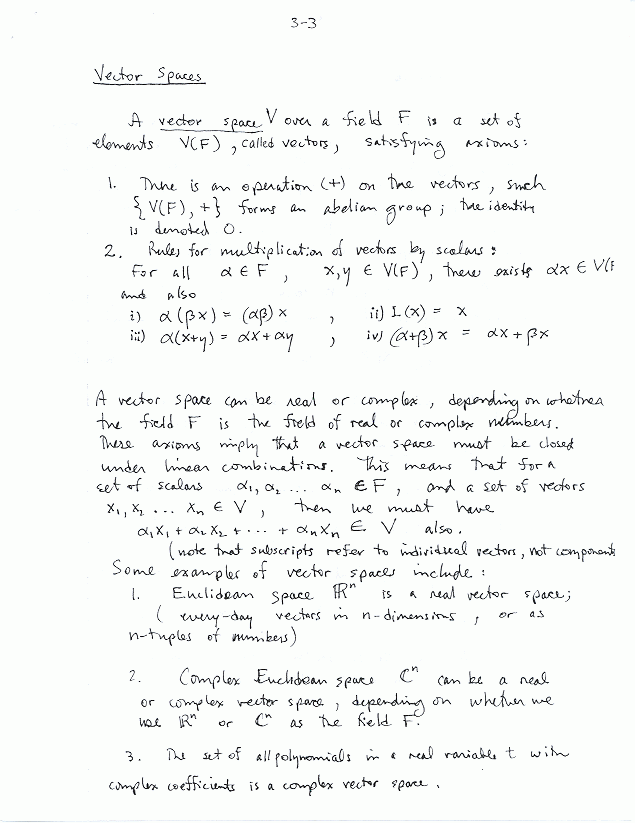 3-3
Vector Spaces
A vector space V over a field F is a set of
elements V(F), called vectors, satisfying axioms:
1. There is an operation (+) on the vectors, such
{V(F), +} forms an abelian group; the identity
is denoted 0.
2. Rules for multiplication of vectors by scalars:
For all α ∈ F, x,y ∈ V(F), there exists αx ∈ V(F
and also
i) α(βx) = (αβ)x , ii) 1(x) = x
iii) α(x+y) = αx + αy , iv) (α+β)x = αx + βx
A vector space can be real or complex, depending on whether
the field F is the field of real or complex numbers.
These axioms imply that a vector space must be closed
under linear combinations. This means that for a
set of scalars α₁, α₂ ... αₙ ∈ F, and a set of vectors
x₁, x₂ ... xₙ ∈ V, then we must have
α₁x₁ + α₂x₂ + ... + αₙxₙ ∈ V also.
(note that subscripts refer to individual vectors, not components
Some examples of vector spaces include:
1. Euclidean space ℝⁿ is a real vector space;
(every-day vectors in n-dimensions, or as
n-tuples of numbers)
2. Complex Euclidean space ℂⁿ can be a real
or complex vector space, depending on whether we
use ℝⁿ or ℂⁿ as the field F.
3. The set of all polynomials in a real variable t with
complex coefficients is a complex vector space.